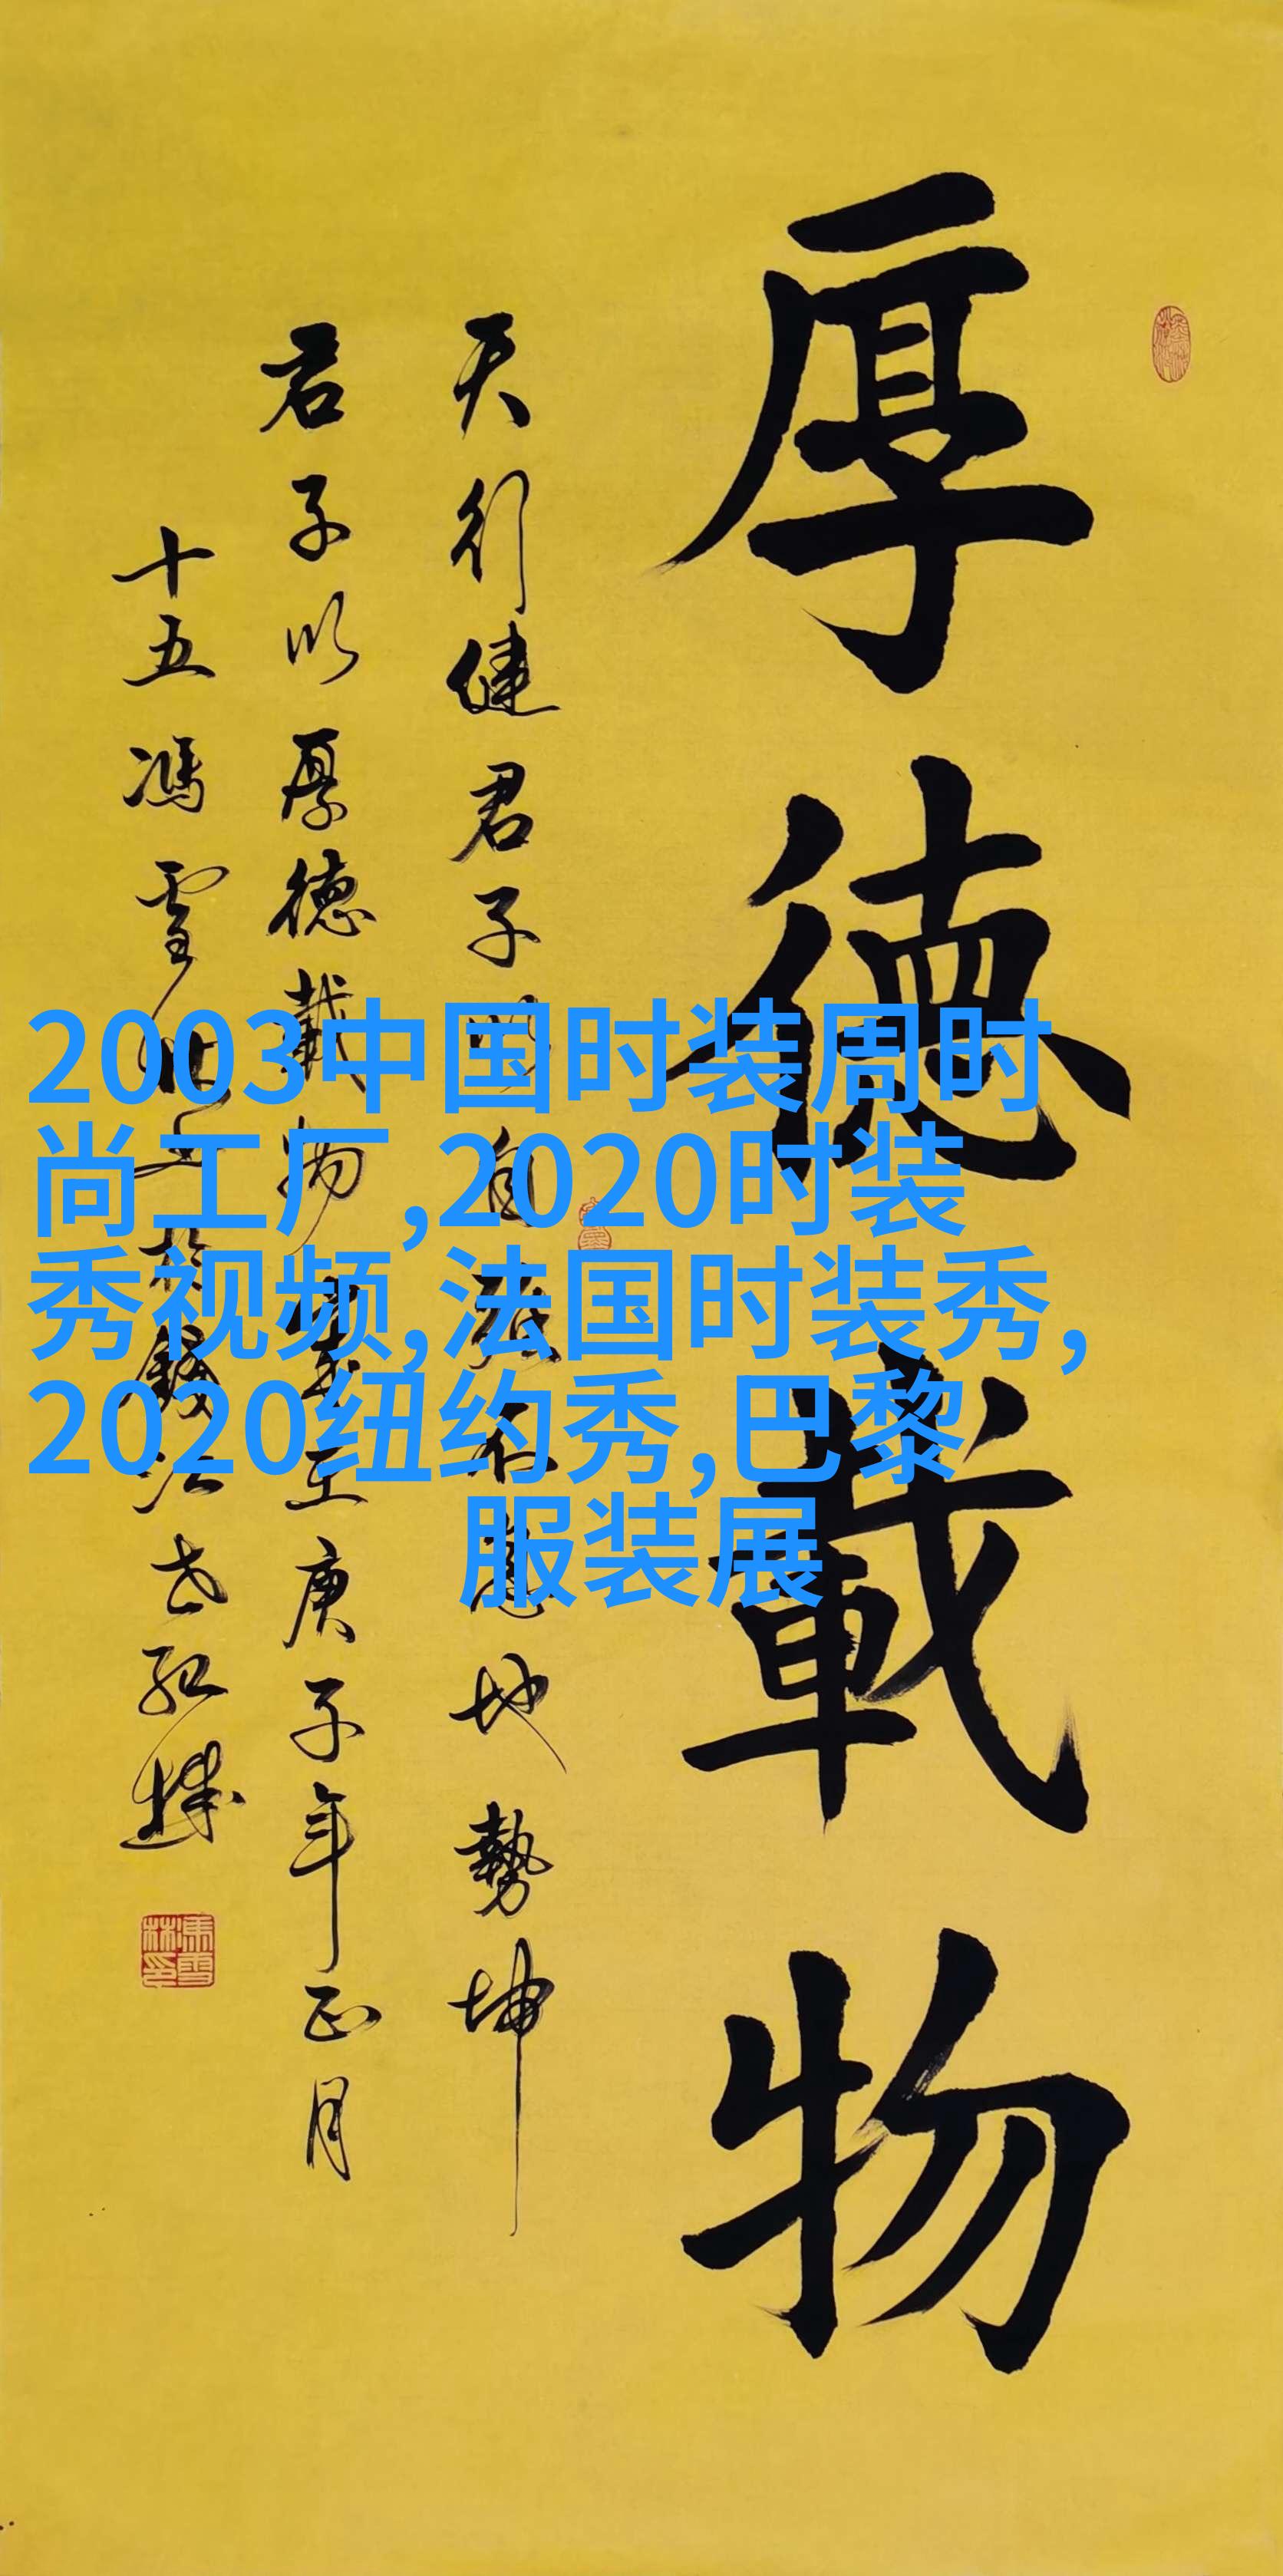 厚德載物
天行健君子以自強不息地勢坤
君子以厚德載物歲在庚子年正月
十五馮雪林於錢江世紀城
馮雪林印
2003中国时装周时
尚工厂,2020时装
秀视频,法国时装秀,
2020纽约秀,巴黎
服装展